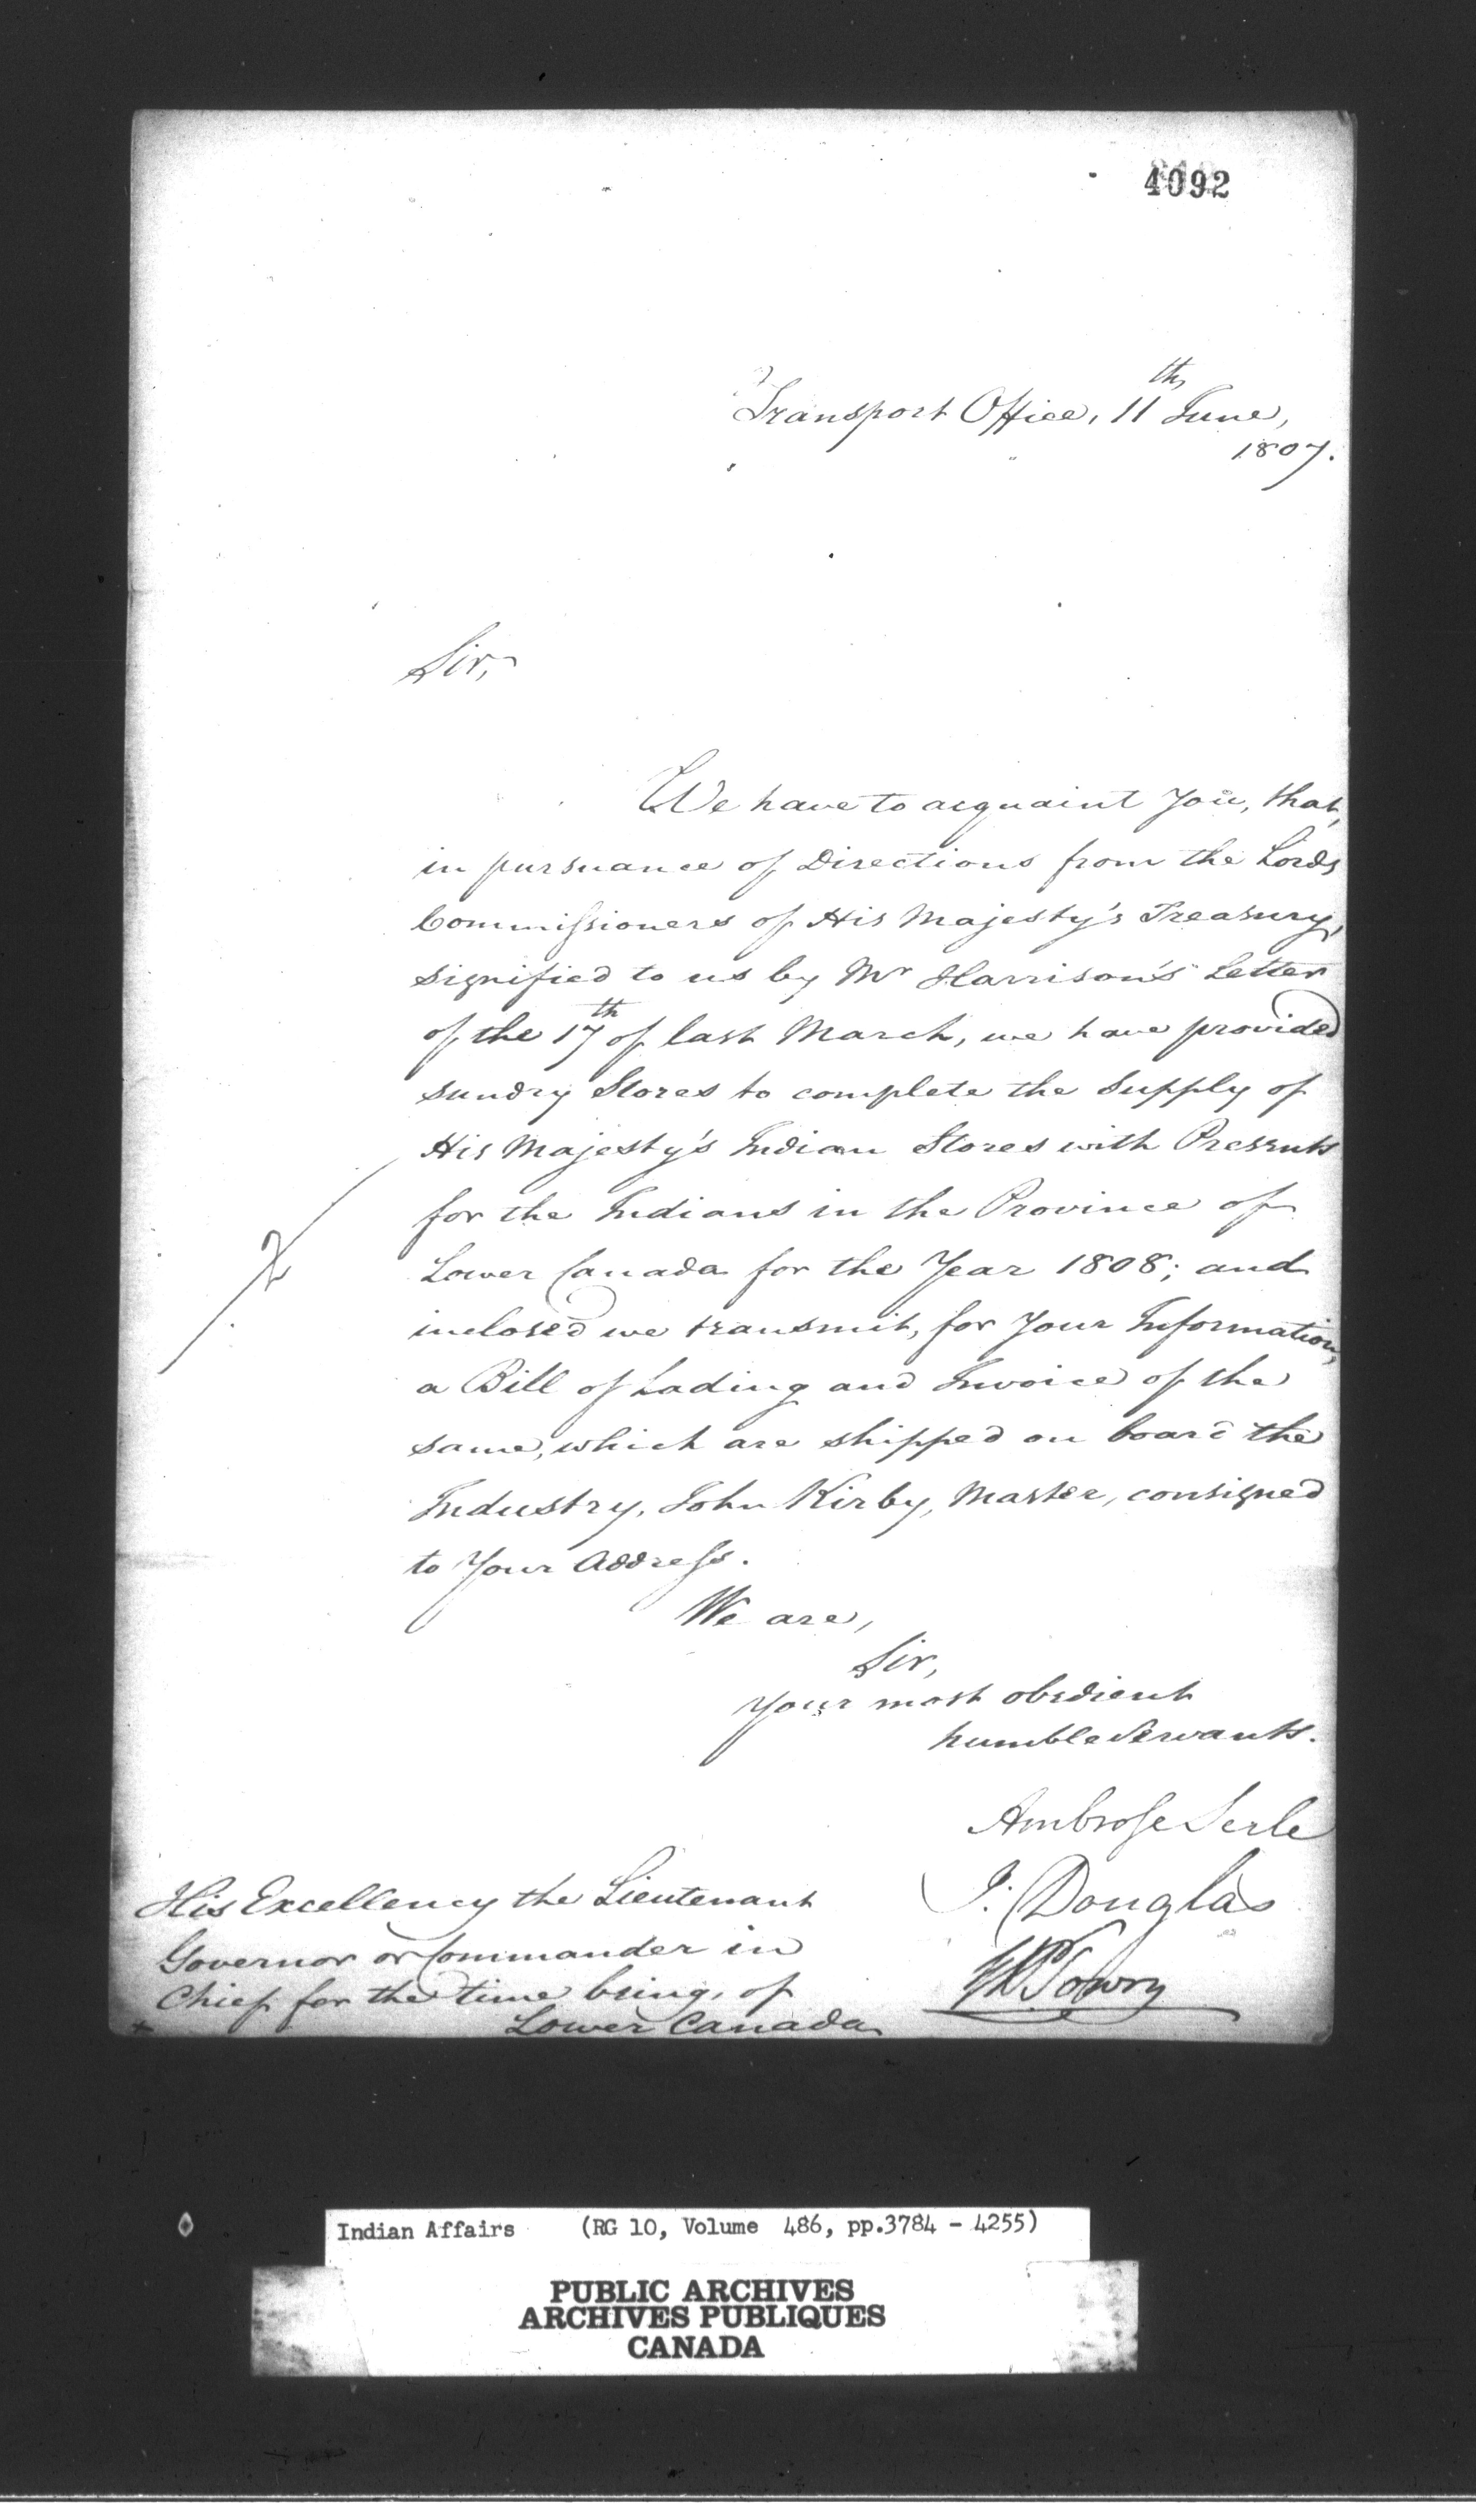 4092
Transport Office, 11th June,
1807.
Sir,
We have to acquaint You, that,
in pursuance of Directions from the Lords
Commissioners of His Majesty's Treasury,
signified to us by Mr Harrison's Letter
of the 17th of last March, we have provided
sundry Stores to complete the Supply of
His Majesty's Indian Stores with Presents
for the Indians in the Province of
Lower Canada for the Year 1808; and
inclosed we transmit, for Your Information,
a Bill of Lading and Invoice of the
same, which are shipped on board the
Industry, John Kirby, Master, consigned
to Your Address.
2
We are,
Sir,
Your most obedient
humble Servants.
Ambrose Serle
J. Douglas
Towry
His Excellency the Lieutenant
Governor or Commander in
Chief for the time being, of
Lower Canada
Indian Affairs (RG 10, Volume 486, pp.3784 - 4255)
PUBLIC ARCHIVES
ARCHIVES PUBLIQUES
CANADA